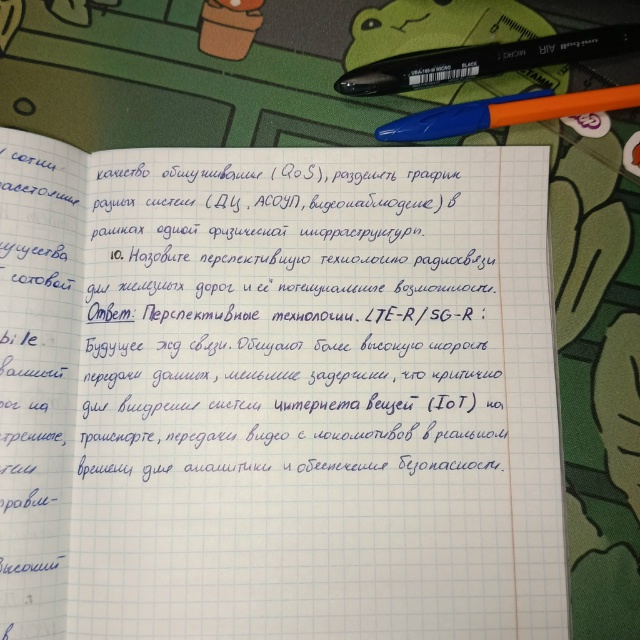 сотни
расстояние
имущества
сотовой
bile.
рог на
тренные,
правле-
высокий
в
качество обслуживание (QoS), разделить трафик
разных систем (ДЦ, АСОУП, видеонаблюдение) в
рамках одной физической инфраструктуры.
10. Назовите перспективную технологию радиосвязи
для железных дорог и её потенциальные возможности.
Ответ: Перспективные технологии. LTE-R/5G-R:
Будущее жд связи. Обещают более высокую скорость
передачи данных, меньшие задержки, что критично
для внедрения систем интернета вещей (IoT) на
транспорте, передачи видео с локомотивов в реальном
времени для аналитики и обеспечения безопасности.
AIR
MICRO
BLACK